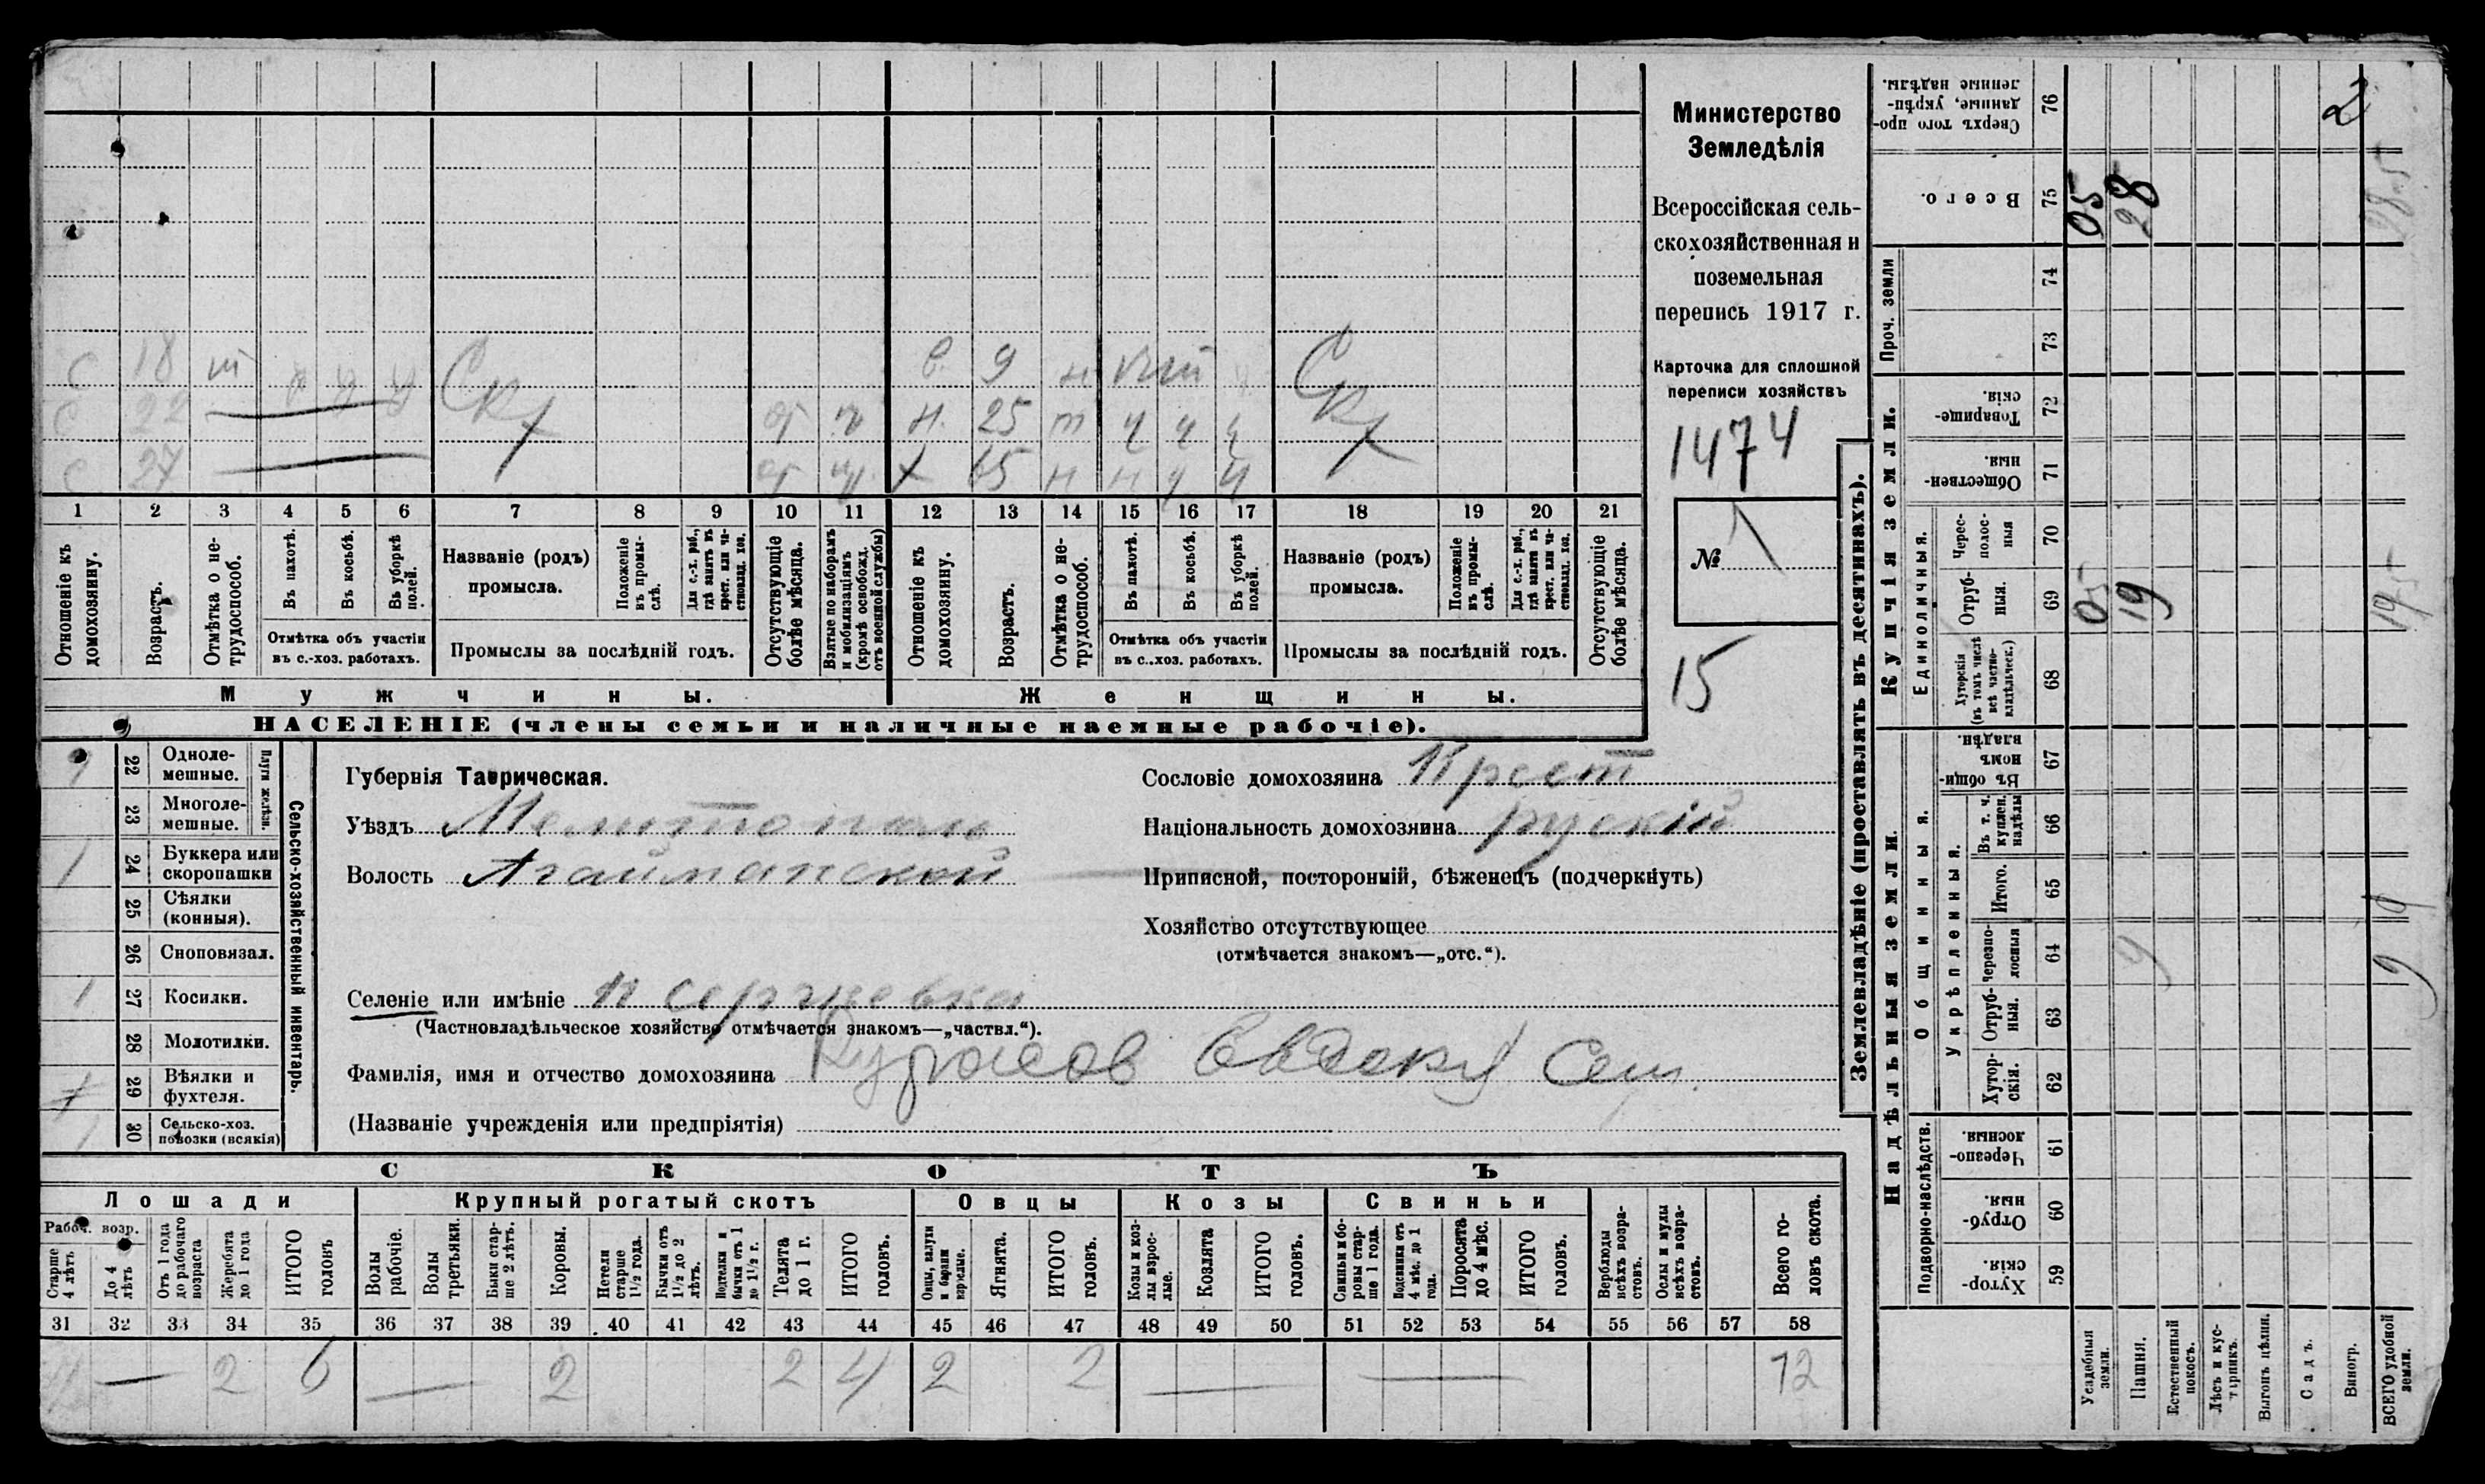 С 18 т у у у Ск С. 9 н Ск
С 22 Х от ч Н. 25 т ч ч ч Х
С 27 от ч Х 65 н н ч ч
1 2 3 4 5 6 7 8 9 10 11 12 13 14 15 16 17 18 19 20 21
Отношеніе къ домохозяину.
Возрастъ.
Отмѣтка о не-трудоспособ.
Въ пахотѣ.
Въ косьбѣ.
Въ уборкѣ полей.
Отмѣтка объ участіи
въ с.-хоз. работахъ.
Названіе (родъ)
промысла.
Положеніе въ промы-слѣ.
Для с.-х. раб., гдѣ занятъ въ крест. или ча-стновлад. хоз.
Промыслы за послѣдній годъ.
Отсутствующіе болѣе мѣсяца.
Взятые по наборамъ и мобилизаціямъ (кромѣ освобожд. отъ военной службы)
Отношеніе къ домохозяину.
Возрастъ.
Отмѣтка о не-трудоспособ.
Въ пахотѣ.
Въ косьбѣ.
Въ уборкѣ полей.
Отмѣтка объ участіи
въ с..хоз. работахъ.
Названіе (родъ)
промысла.
Положеніе въ промы-слѣ.
Для с.-х. раб., гдѣ занятъ въ крест. или ча-стновлад. хоз.
Промыслы за послѣдній годъ.
Отсутствующіе болѣе мѣсяца.
Мужчины. Женщины.
НАСЕЛЕНІЕ (члены семьи и наличные наемные рабочіе).
Министерство
Земледѣлія
Всероссійская сель-
скохозяйственная и
поземельная
перепись 1917 г.
Карточка для сплошной
переписи хозяйствъ
1474
№
15
22 Одноле-мешные.
23 Многоле-мешные.
Плуги желѣзн.
1 24 Буккера или скоропашки
25 Сѣялки (конныя).
26 Сноповязал.
1 27 Косилки.
28 Молотилки.
29 Вѣялки и фухтеля.
1 30 Сельско-хоз. повозки (всякія)
Сельско-хозяйственный инвентарь.
Губернія Таврическая.
Уѣздъ Мелитополь
Волость Агайманской
Селеніе или имѣніе п Сергиевка
(Частновладѣльческое хозяйство отмѣчается знакомъ—„частвл.“).
Фамилія, имя и отчество домохозяина
(Названіе учрежденія или предпріятія)
Сословіе домохозяина Крест
Національность домохозяина рускій
Приписной, посторонній, бѣженецъ (подчеркнуть)
Хозяйство отсутствующее
(отмѣчается знакомъ—„отс.“).
СКОТЪ
Лошади Крупный рогатый скотъ Овцы Козы Свиньи
Рабоч. возр.
Старше 4 лѣтъ
До 4 лѣтъ
Отъ 1 года до рабочаго возраста
Жеребята до 1 года
ИТОГО головъ
Волы рабочіе.
Волы третьяки.
Быки стар-ше 2 лѣтъ.
Коровы.
Нетели старше 1½ года.
Бычки отъ 1½ до 2 лѣтъ.
Подтелки и бычки отъ 1 до 1½ г.
Телята до 1 г.
ИТОГО головъ.
Овцы, валухи и бараны взрослые.
Ягнята.
ИТОГО головъ.
Козы и коз-лы взрос-лые.
Козлята
ИТОГО головъ.
Свиньи и бо-ровы стар-ше 1 года.
Подсвинки отъ 4 мѣс. до 1 года.
Поросята до 4 мѣс.
ИТОГО головъ.
Верблюды всѣхъ возра-стовъ.
Ослы и мулы всѣхъ возра-стовъ.
Всего го-ловъ скота.
31 32 33 34 35 36 37 38 39 40 41 42 43 44 45 46 47 48 49 50 51 52 53 54 55 56 57 58
4 — 2 6 — 2 2 4 2 2 — — 12
Землевладѣніе (проставлять въ десятинахъ).
Купчія земли.
Надѣльныя земли.
Сверхъ того про-данные, укрѣп-ленные надѣлы. 76 2
Всего. 75 05 28 28-5
Проч. земли 74
73
Товарище-скія. 72
Обществен-ныя. 71
Единоличныя.
Черес-полос-ныя 70
Отруб-ныя. 69 05 19 195
Хуторскія (въ томъ числѣ всѣ частно-владѣльческ.) 68
Общинныя.
Въ общи-номъ владѣн. 67
Укрѣпленныя.
Въ т. ч. куплен. надѣлы 66
Итого. 65 9
Черезпо-лосныя 64 9 9
Отруб-ныя. 63
Хутор-скія. 62
Подворно-наслѣдств.
Черезпо-лосныя. 61
Отруб-ныя. 60
Хутор-скія. 59
Усадебныя земли.
Пашня.
Естественный покосъ.
Лѣсъ и кус-тарникъ.
Выгонъ цѣлин.
Садъ.
Виногр.
ВСЕГО удобной земли.